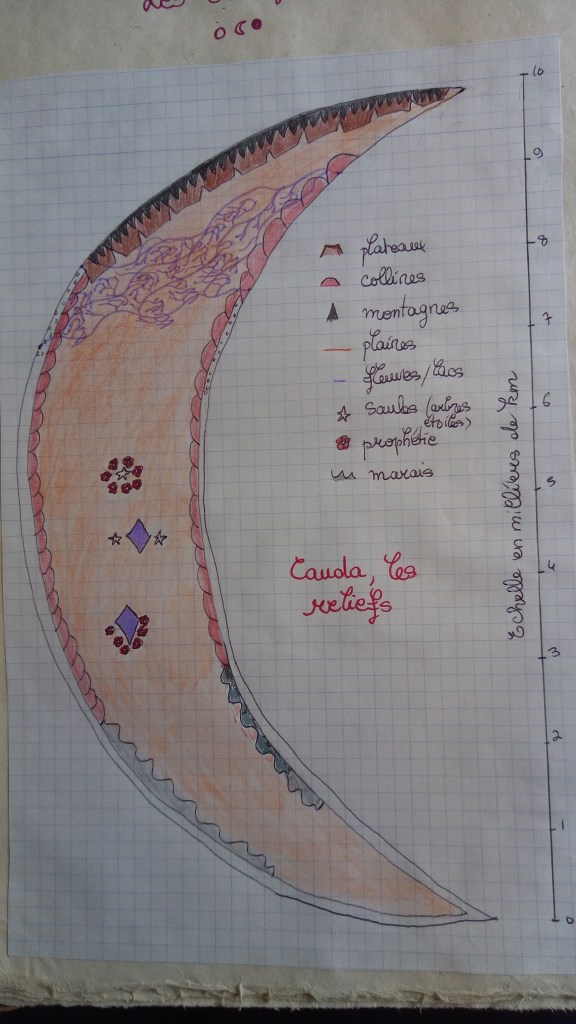 Les
plateaux
collines
montagnes
plaines
fleuves/lacs
saubs (arbres
étoiles)
prophétie
marais
Cauda, les
reliefs
Echelle en milliers de km
10
9
8
7
6
5
4
3
2
1
0